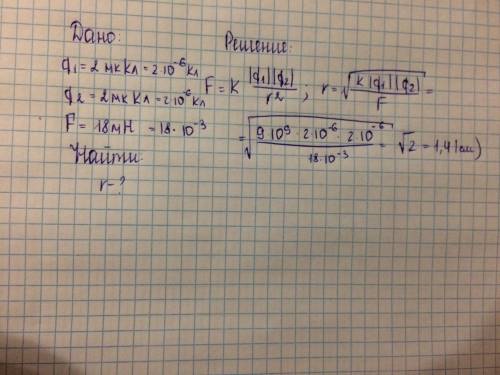 Дано:
q₁ = 2 мкКл = 2·10⁻⁶ Кл
q₂ = 2 мкКл = 2·10⁻⁶ Кл
F = 18 мН = 18·10⁻³
Найти:
r - ?
Решение:
F = K |q₁||q₂| / r² ; r = √(K |q₁||q₂| / F) =
= √(9·10⁹·2·10⁻⁶·2·10⁻⁶ / 18·10⁻³) = √2 = 1,41 (см)